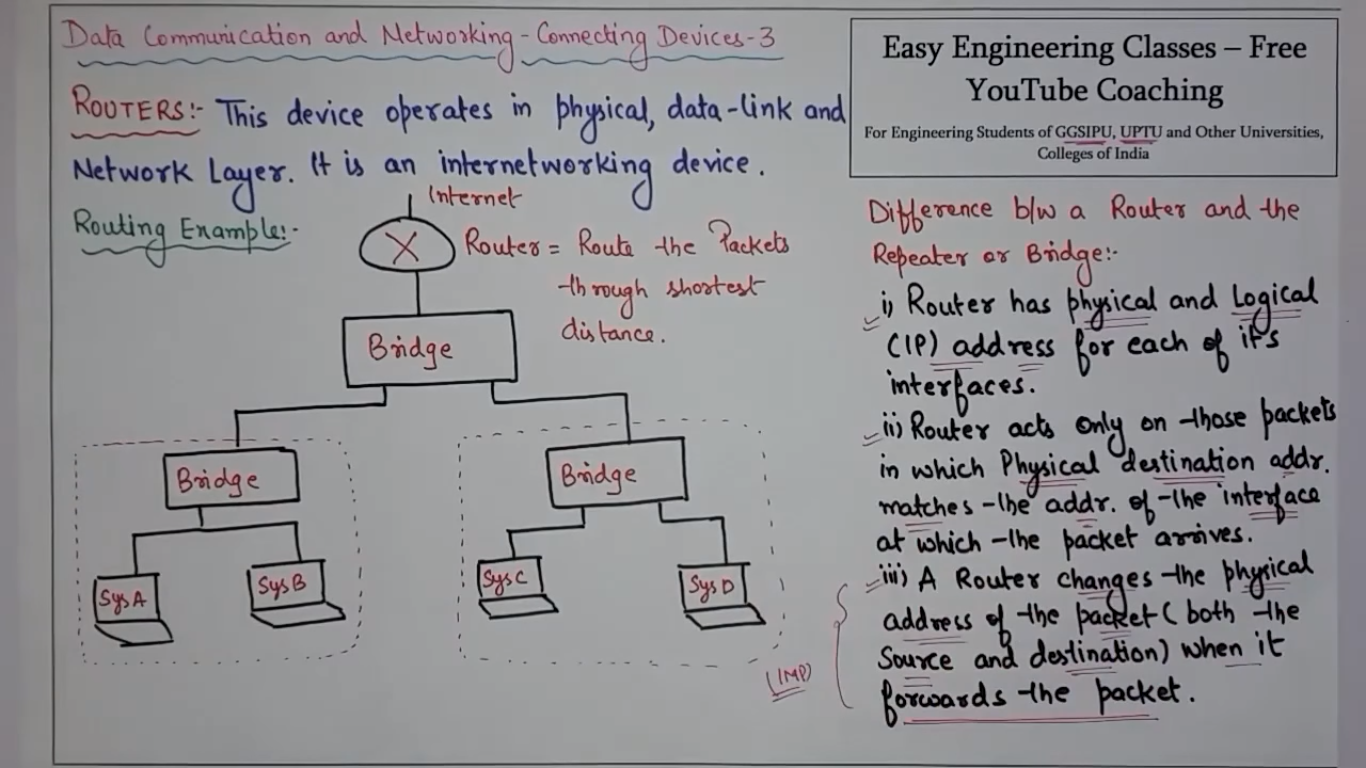 Data Communication and Networking - Connecting Devices-3
Easy Engineering Classes – Free
YouTube Coaching
For Engineering Students of GGSIPU, UPTU and Other Universities,
Colleges of India
ROUTERS:- This device operates in physical, data-link and
Network Layer. It is an internetworking device.
Routing Example:-
Internet
X
Router = Route the Packets
through shortest
distance.
Bridge
Bridge
Bridge
Sys A
Sys B
Sys C
Sys D
Difference b/w a Router and the
Repeater or Bridge:-
i) Router has physical and Logical
(IP) address for each of it's
interfaces.
ii) Router acts only on those packets
in which Physical destination addr.
matches the addr. of the interface
at which the packet arrives.
iii) A Router changes the physical
address of the packet (both the
Source and destination) when it
forwards the packet.
(IMP)